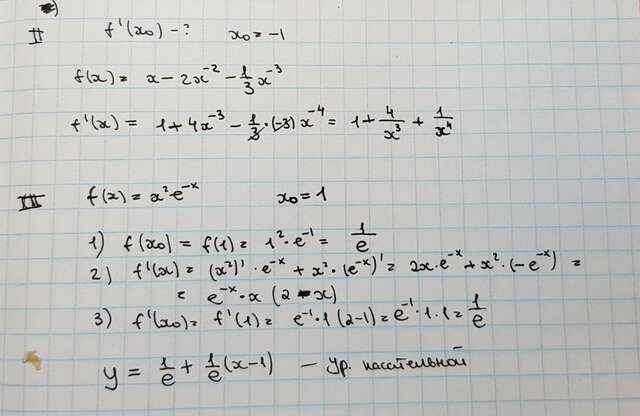 II f'(x₀) - ? x₀ = -1
f(x) = x - 2x⁻² - 1/3 x⁻³
f'(x) = 1 + 4x⁻³ - 1/3 · (-3) x⁻⁴ = 1 + 4/x³ + 1/x⁴
III f(x) = x² · e⁻ˣ x₀ = 1
1) f(x₀) = f(1) = 1² · e⁻¹ = 1/e
2) f'(x) = (x²)' · e⁻ˣ + x² · (e⁻ˣ)' = 2x · e⁻ˣ + x² · (-e⁻ˣ) =
= e⁻ˣ · x (2 - x)
3) f'(x₀) = f'(1) = e⁻¹ · 1 (2-1) = e⁻¹ · 1 · 1 = 1/e
y = 1/e + 1/e (x-1) — ур. касательной